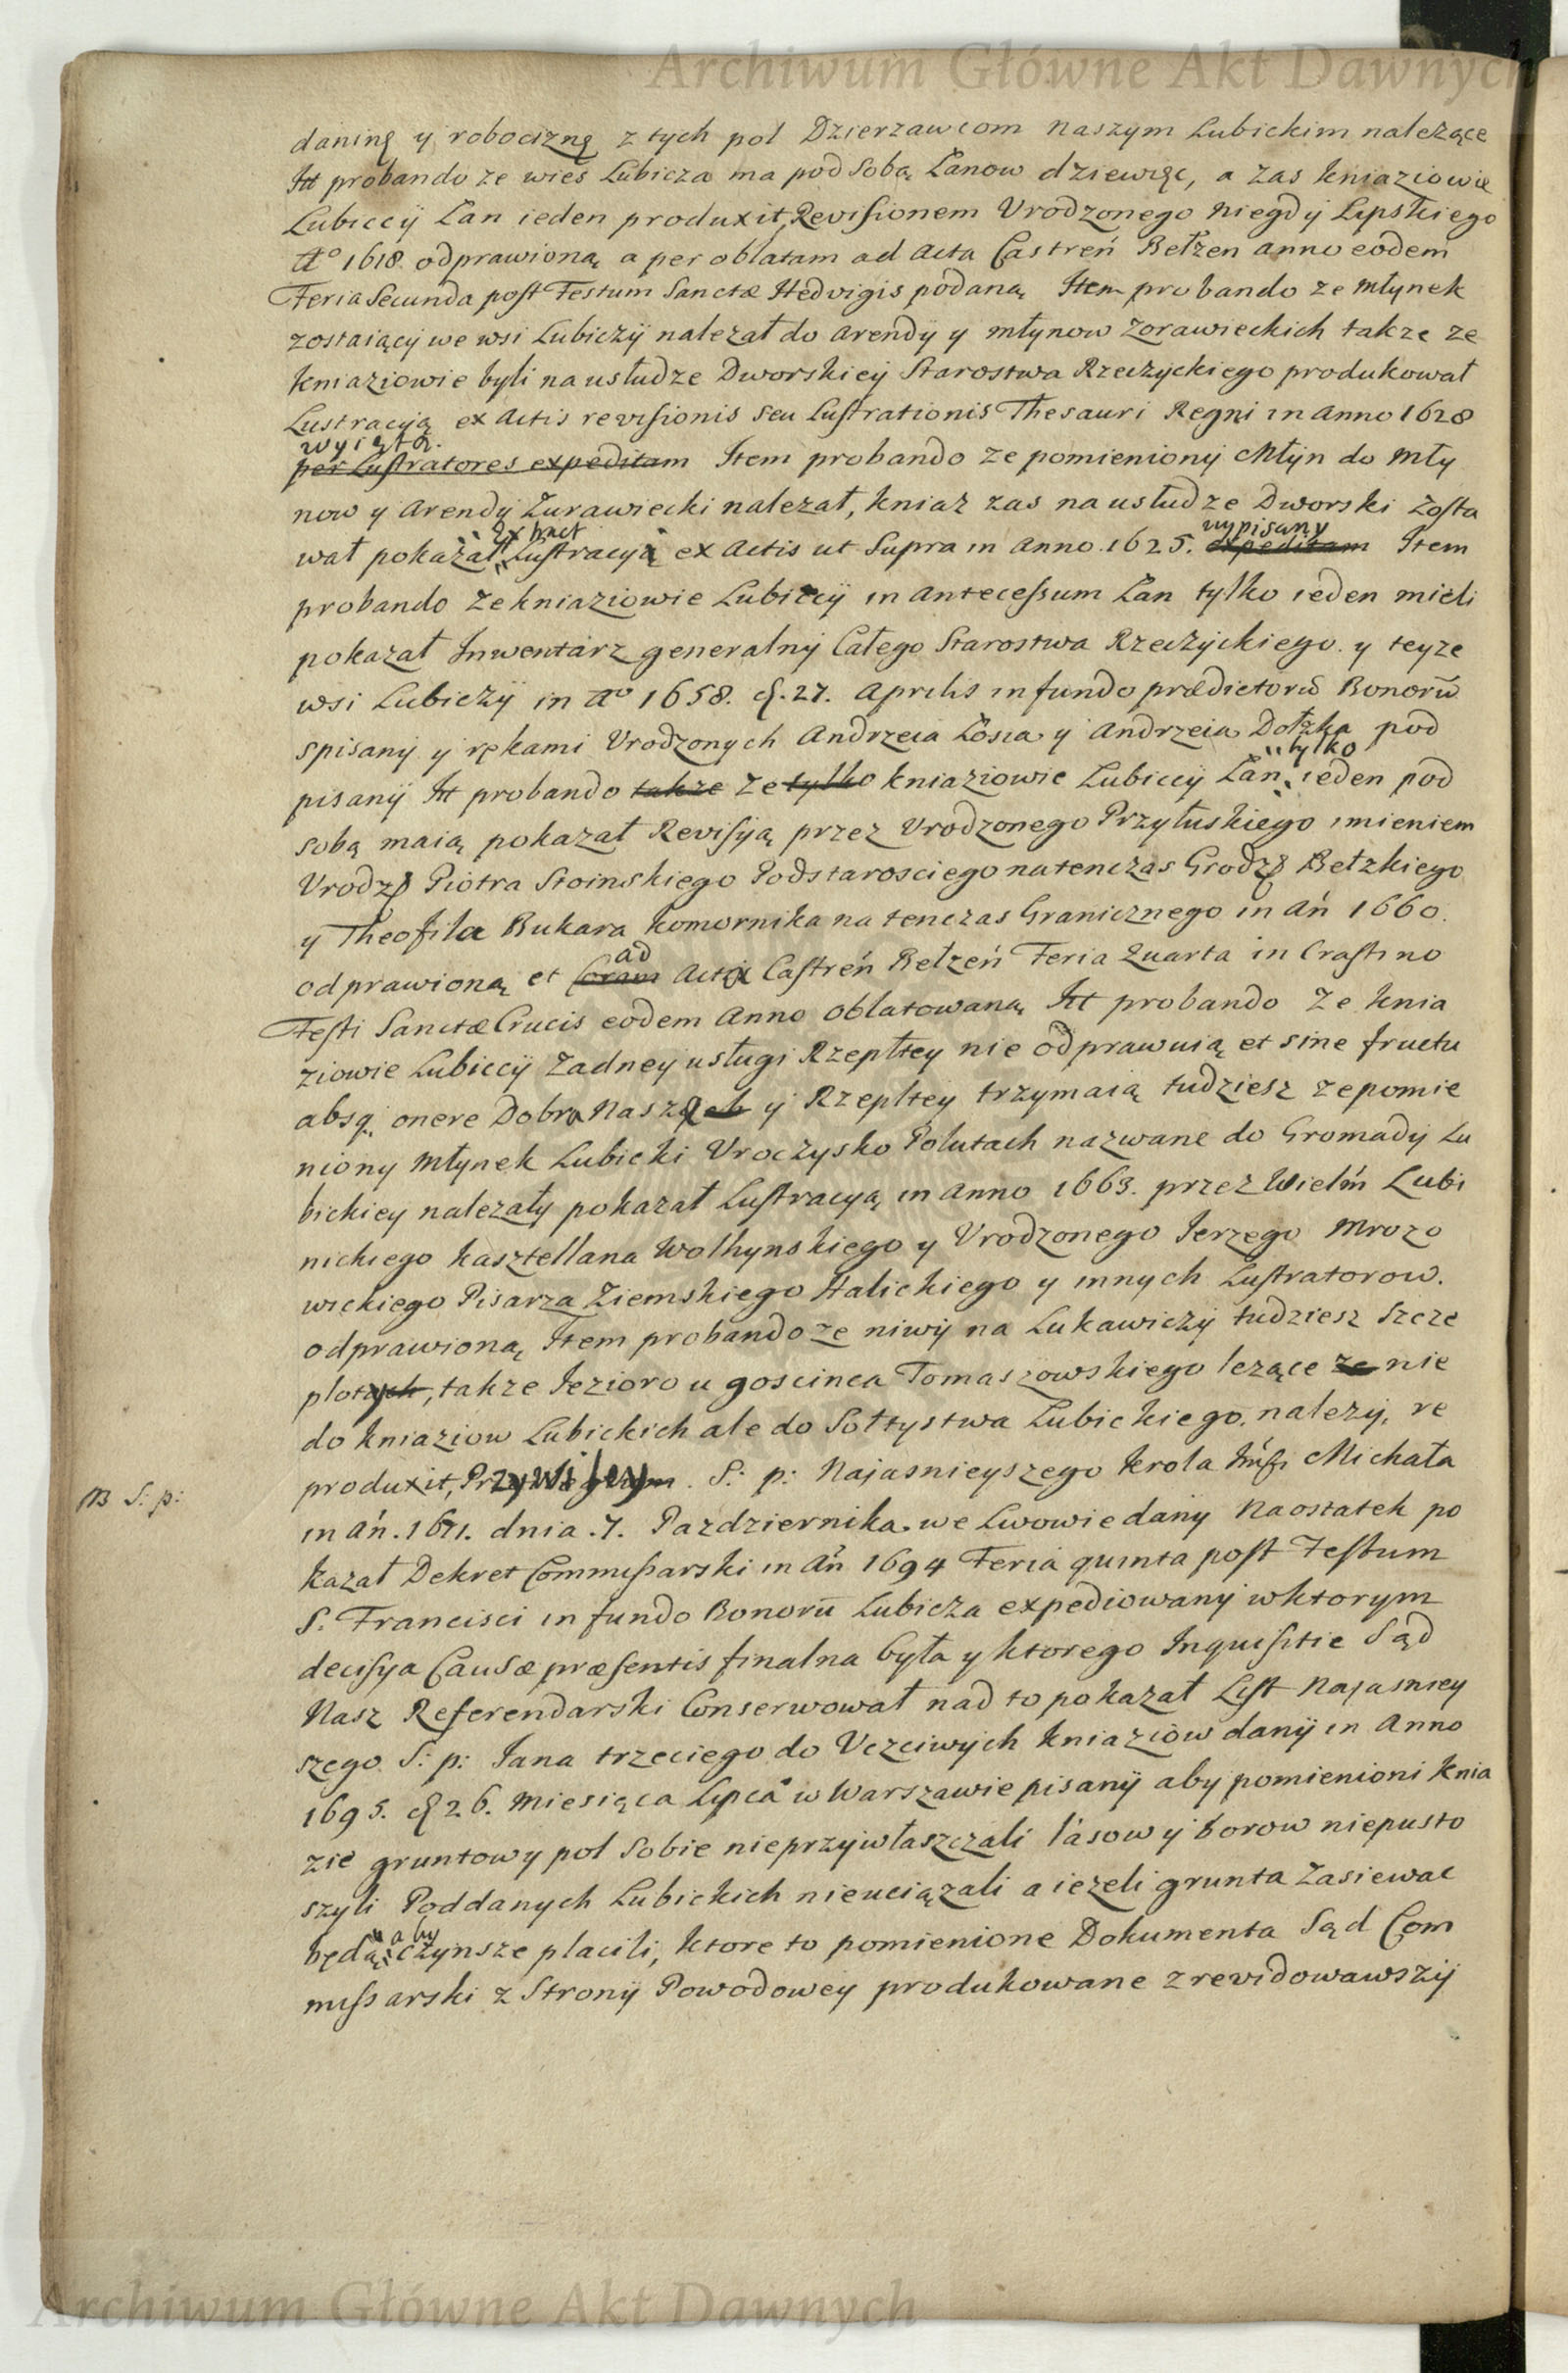 Archiwum Główne Akt Dawnych
daninę y robociznę z tych pol Dzierzawcom Naszym Lubickim należące
Itt probando ze wies Lubicza ma pod Sobą Łanow dziewięc, a zas kniaziowie
Lubiccÿ Łan ieden produxit, Revisionem Vrodzonego Niegdÿ Lipskiego
Aº 1618. odprawioną a per oblatam ad Acta Castreń Bełzen anno eodem
Feria Secunda post Festum Sanctæ Hedvigis podaną Item probando ze Młynek
zostaiącÿ we wsi Lubiczÿ nalezał do Arendÿ y Młynow Zorawieckich takze ze
kniaziowie byli na usłudze Dworskieÿ Starostwa Rzeczyckiego produkował
Lustracyą ex Actis revisionis Seu Lustrationis Thesauri Regni in Anno 1628
wyiętą.
per Lustratores expeditam Item probando ze pomienionÿ Młÿn do Mły
now y Arendÿ Zurawiecki nalezał, kniaz zas na usłudze Dworski Zosta
Extract wypisany
wał pokazał Lustracyi ex Actis ut Supra in Anno 1625. expeditam Item
probando ze kniaziowie Lubiccÿ in Antecessum Łan tylko ieden mieli
pokazał Inwentarz generalnÿ Całego Starostwa Rzeczyckiego y teyze
wsi Lubiczÿ in Aº 1658. d. 27. Aprilis in fundo prædictorū Bonorū
spisanÿ y rękami Vrodzonych Andrzeia Łosia y Andrzeia Dołzka pod
tylko
pisanÿ Itt probando takze ze tylko kniaziowie Lubiccÿ Łan ieden pod
sobą maią pokazał Revisyą przez Vrodzonego Przyłuskiego imieniem
Vrodz Piotra Stoinskiego Podstarosciego natenczas Grodz Bełzkiego
y Theofila Bukara komornika na tenczas Granicznego in Ań 1660.
ad
odprawioną et Coram Acta Castreń Bełzeń Feria Quarta in Crastino
Festi Sanctæ Crucis eodem Anno oblatowaną Itt probando ze knia
ziowie Lubiccÿ Zadney usługi Rzepltey nie odprawuią et sine fructu
absq, onere Dobra Nasze y Rzepltey trzymaią tudziesz ze pomie
niony Młynek Lubicki Vroczysko Polutach nazwane do Gromadÿ Lu
bickiey nalezały pokazał Lustracyą in Anno 1663. przez Wielm Lubi
nickiego kasztellana Wolhynskiego y Vrodzonego Jerzego Mrozo
wickiego Pisarza Ziemskiego Halickiego y innych Lustratorow.
odprawioną Item probando ze niwÿ na Lukawiczÿ tudziesz Szcze
ploty, takze Jezioro u goscinca Tomaszowskiego lezące ze nie
do kniaziow Lubickich ale do Sołtystwa Lubickiego nalezÿ, re
NB S: p:
produxit, Przywiley S: p: Najasnieyszego krola Michała
in Ań. 1671. dnia 7. Pazdziernika we Lwowie danÿ Naostatek po
kazał Dekret Commissarski in Ań 1694 Feria quinta post Festum
S. Francisci in fundo Bonorū Lubicza expediowanÿ w ktorym
decisya Causæ præsentis finalna była y ktorego Inquisitie Sąd
Nasz Referendarski Conserwował nad to pokazał List Najasniey
szego S: p: Jana trzeciego do Vczciwÿch kniaziow danÿ in Anno
1695. d 26. Miesiąca Lipca w Warszawie pisanÿ aby pomienioni knia
zie gruntow y pol Sobie nieprzywłaszczali lasow y borow niepusto
szyli Poddanych Lubickich nieuciązali a iezeli grunta Zasiewac
aby
będą czynsze placili, ktore to pomienione Dokumenta Sąd Com
missarski z Stronÿ Powodowey produkowane zrevidowawszÿ
Archiwum Główne Akt Dawnych